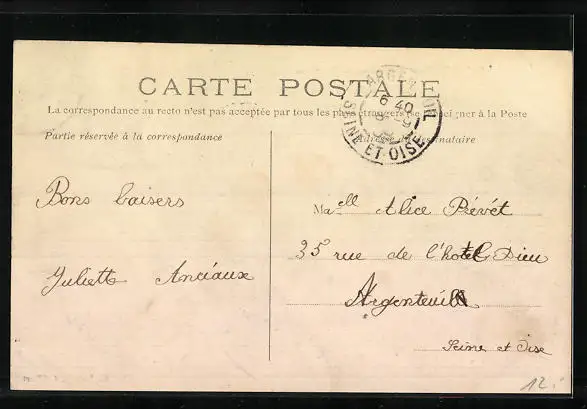 CARTE POSTALE
La correspondance au recto n'est pas acceptée par tous les pays étrangers (se renseigner à la Poste
Partie réservée à la correspondance
Adresse du destinataire
SEINE-ET-OISE
6 40
Bons baisers
Juliette Anciaux
Mа ell Alice Prévét
35 rue de l'hotel Dieu
Argenteuil
Seine et Oise
12.